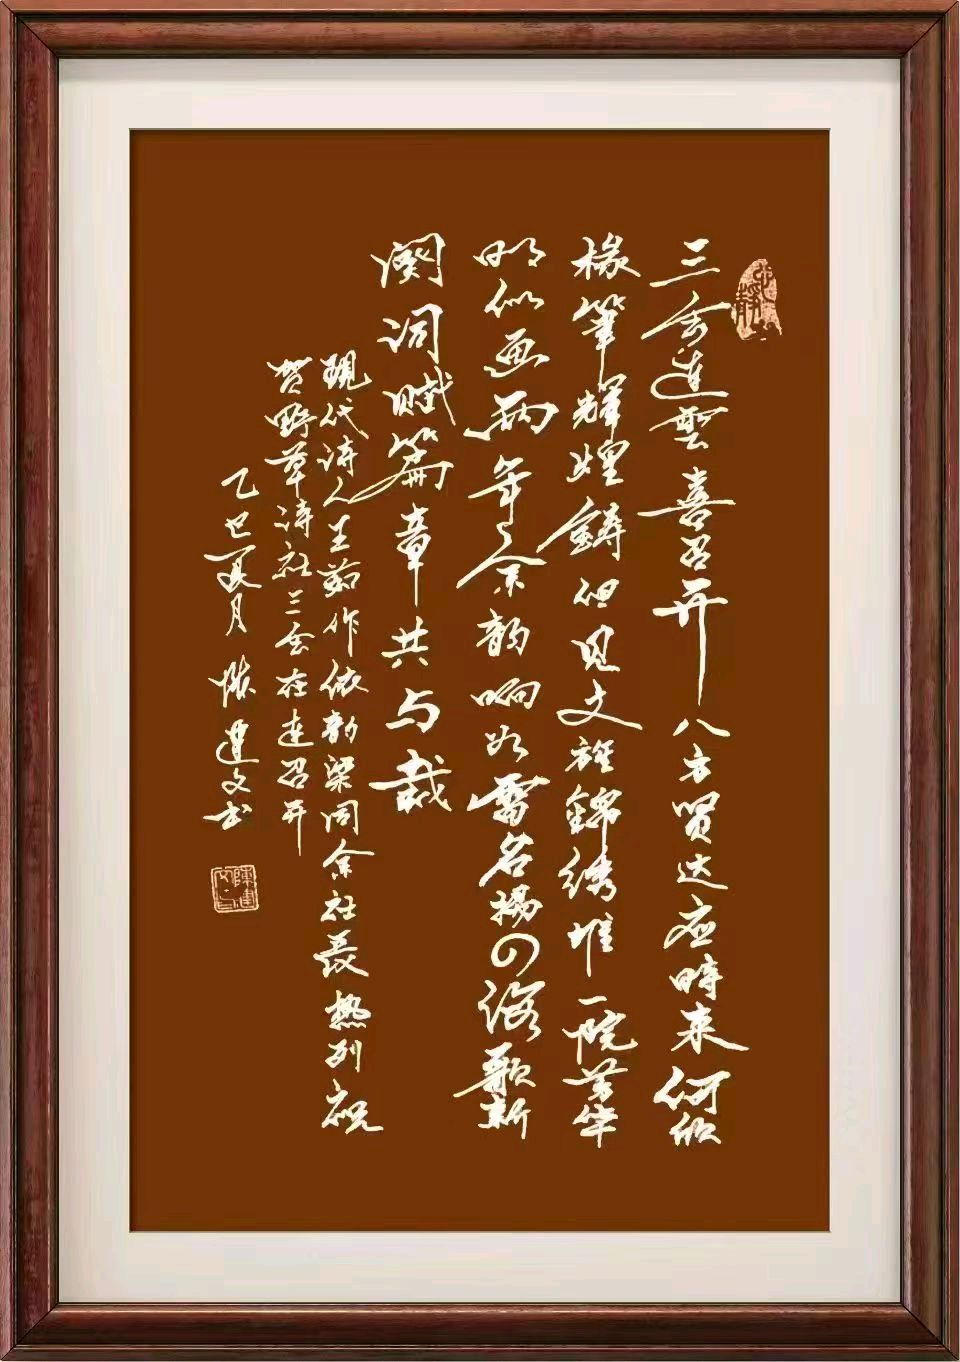 三会連雲喜召开八方贤达应時来何
椽筆輝煌鋳但见文旌錦绣堆一院芳华
明似画两年余韵响如雷名揚四海歌新
阕词赋篇章共与裁
现代诗人王茹作依韵梁同余社长热列祝
贺野草诗社三会在连召开
乙巳夏月 陈建文书